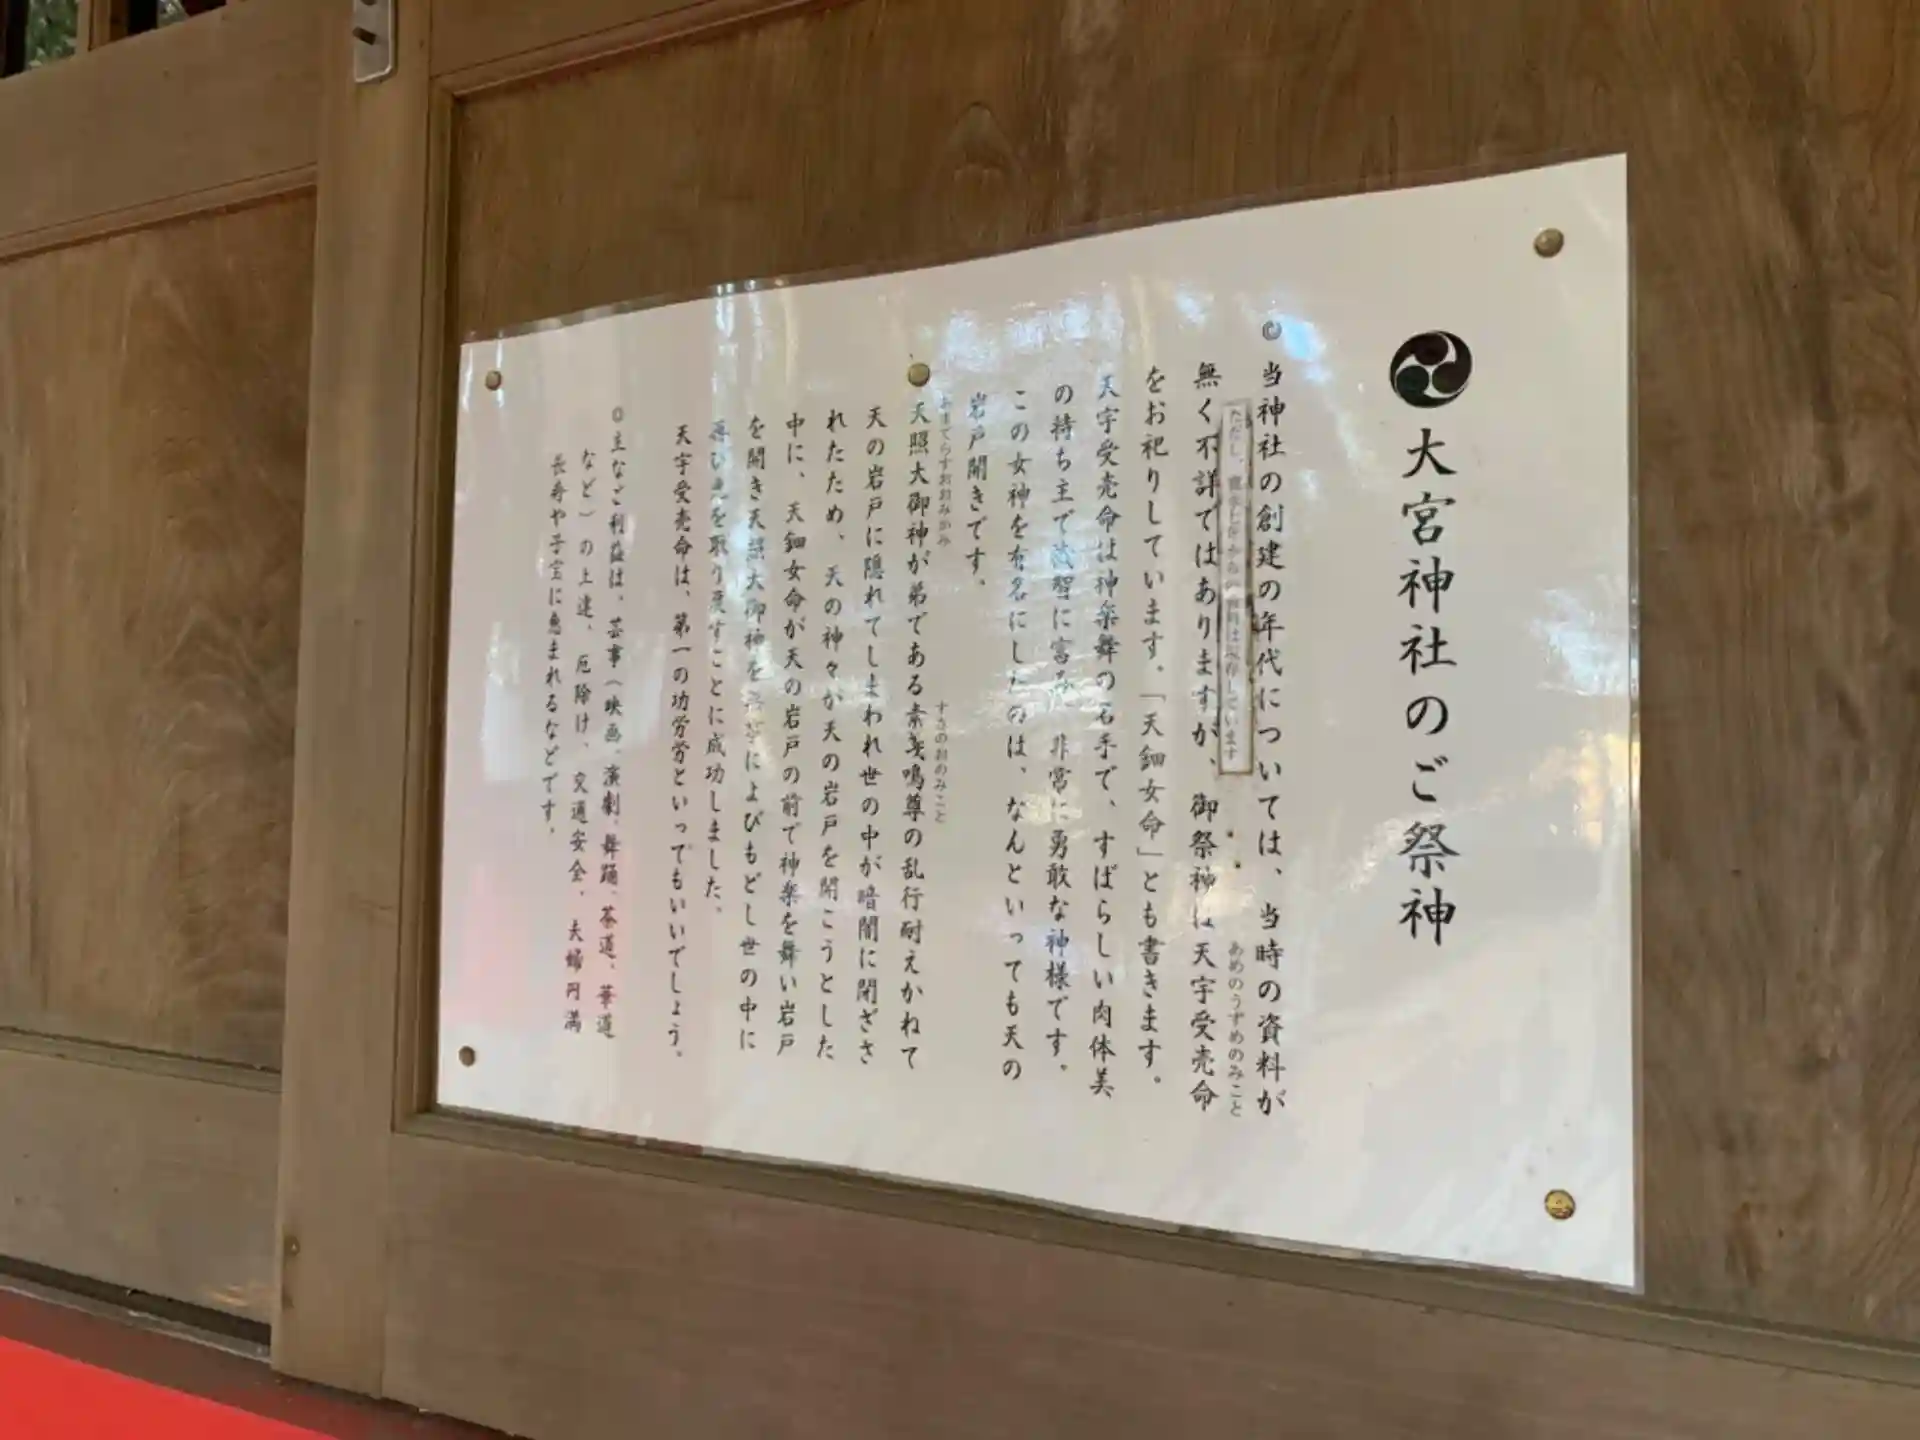 大宮神社のご祭神
◎当神社の創建の年代については、当時の資料が
無く不詳ではありますが、御祭神は天宇受売命
ただし、からの資料は現存しています
あめのうずめのみこと
をお祀りしています。「天鈿女命」とも書きます。
天宇受売命は神楽舞の名手で、すばらしい肉体美
の持ち主で機智に富み、非常に勇敢な神様です。
この女神を有名にしたのは、なんといっても天の
岩戸開きです。
あまてらすおおみかみ
すさのおのみこと
天照大御神が弟である素戔鳴尊の乱行耐えかねて
天の岩戸に隠れてしまわれ世の中が暗闇に閉ざさ
れたため、天の神々が天の岩戸を開こうとした
中に、天鈿女命が天の岩戸の前で神楽を舞い岩戸
を開き天照大御神をによびもどし世の中に
再び光を取り戻すことに成功しました。
天宇受売命は、第一の功労労といってもいいでしょう。
◎主なご利益は、芸事(映画、演劇、舞踊、茶道、華道
など)の上達、厄除け、交通安全、夫婦円満
長寿や子宝に恵まれるなどです。